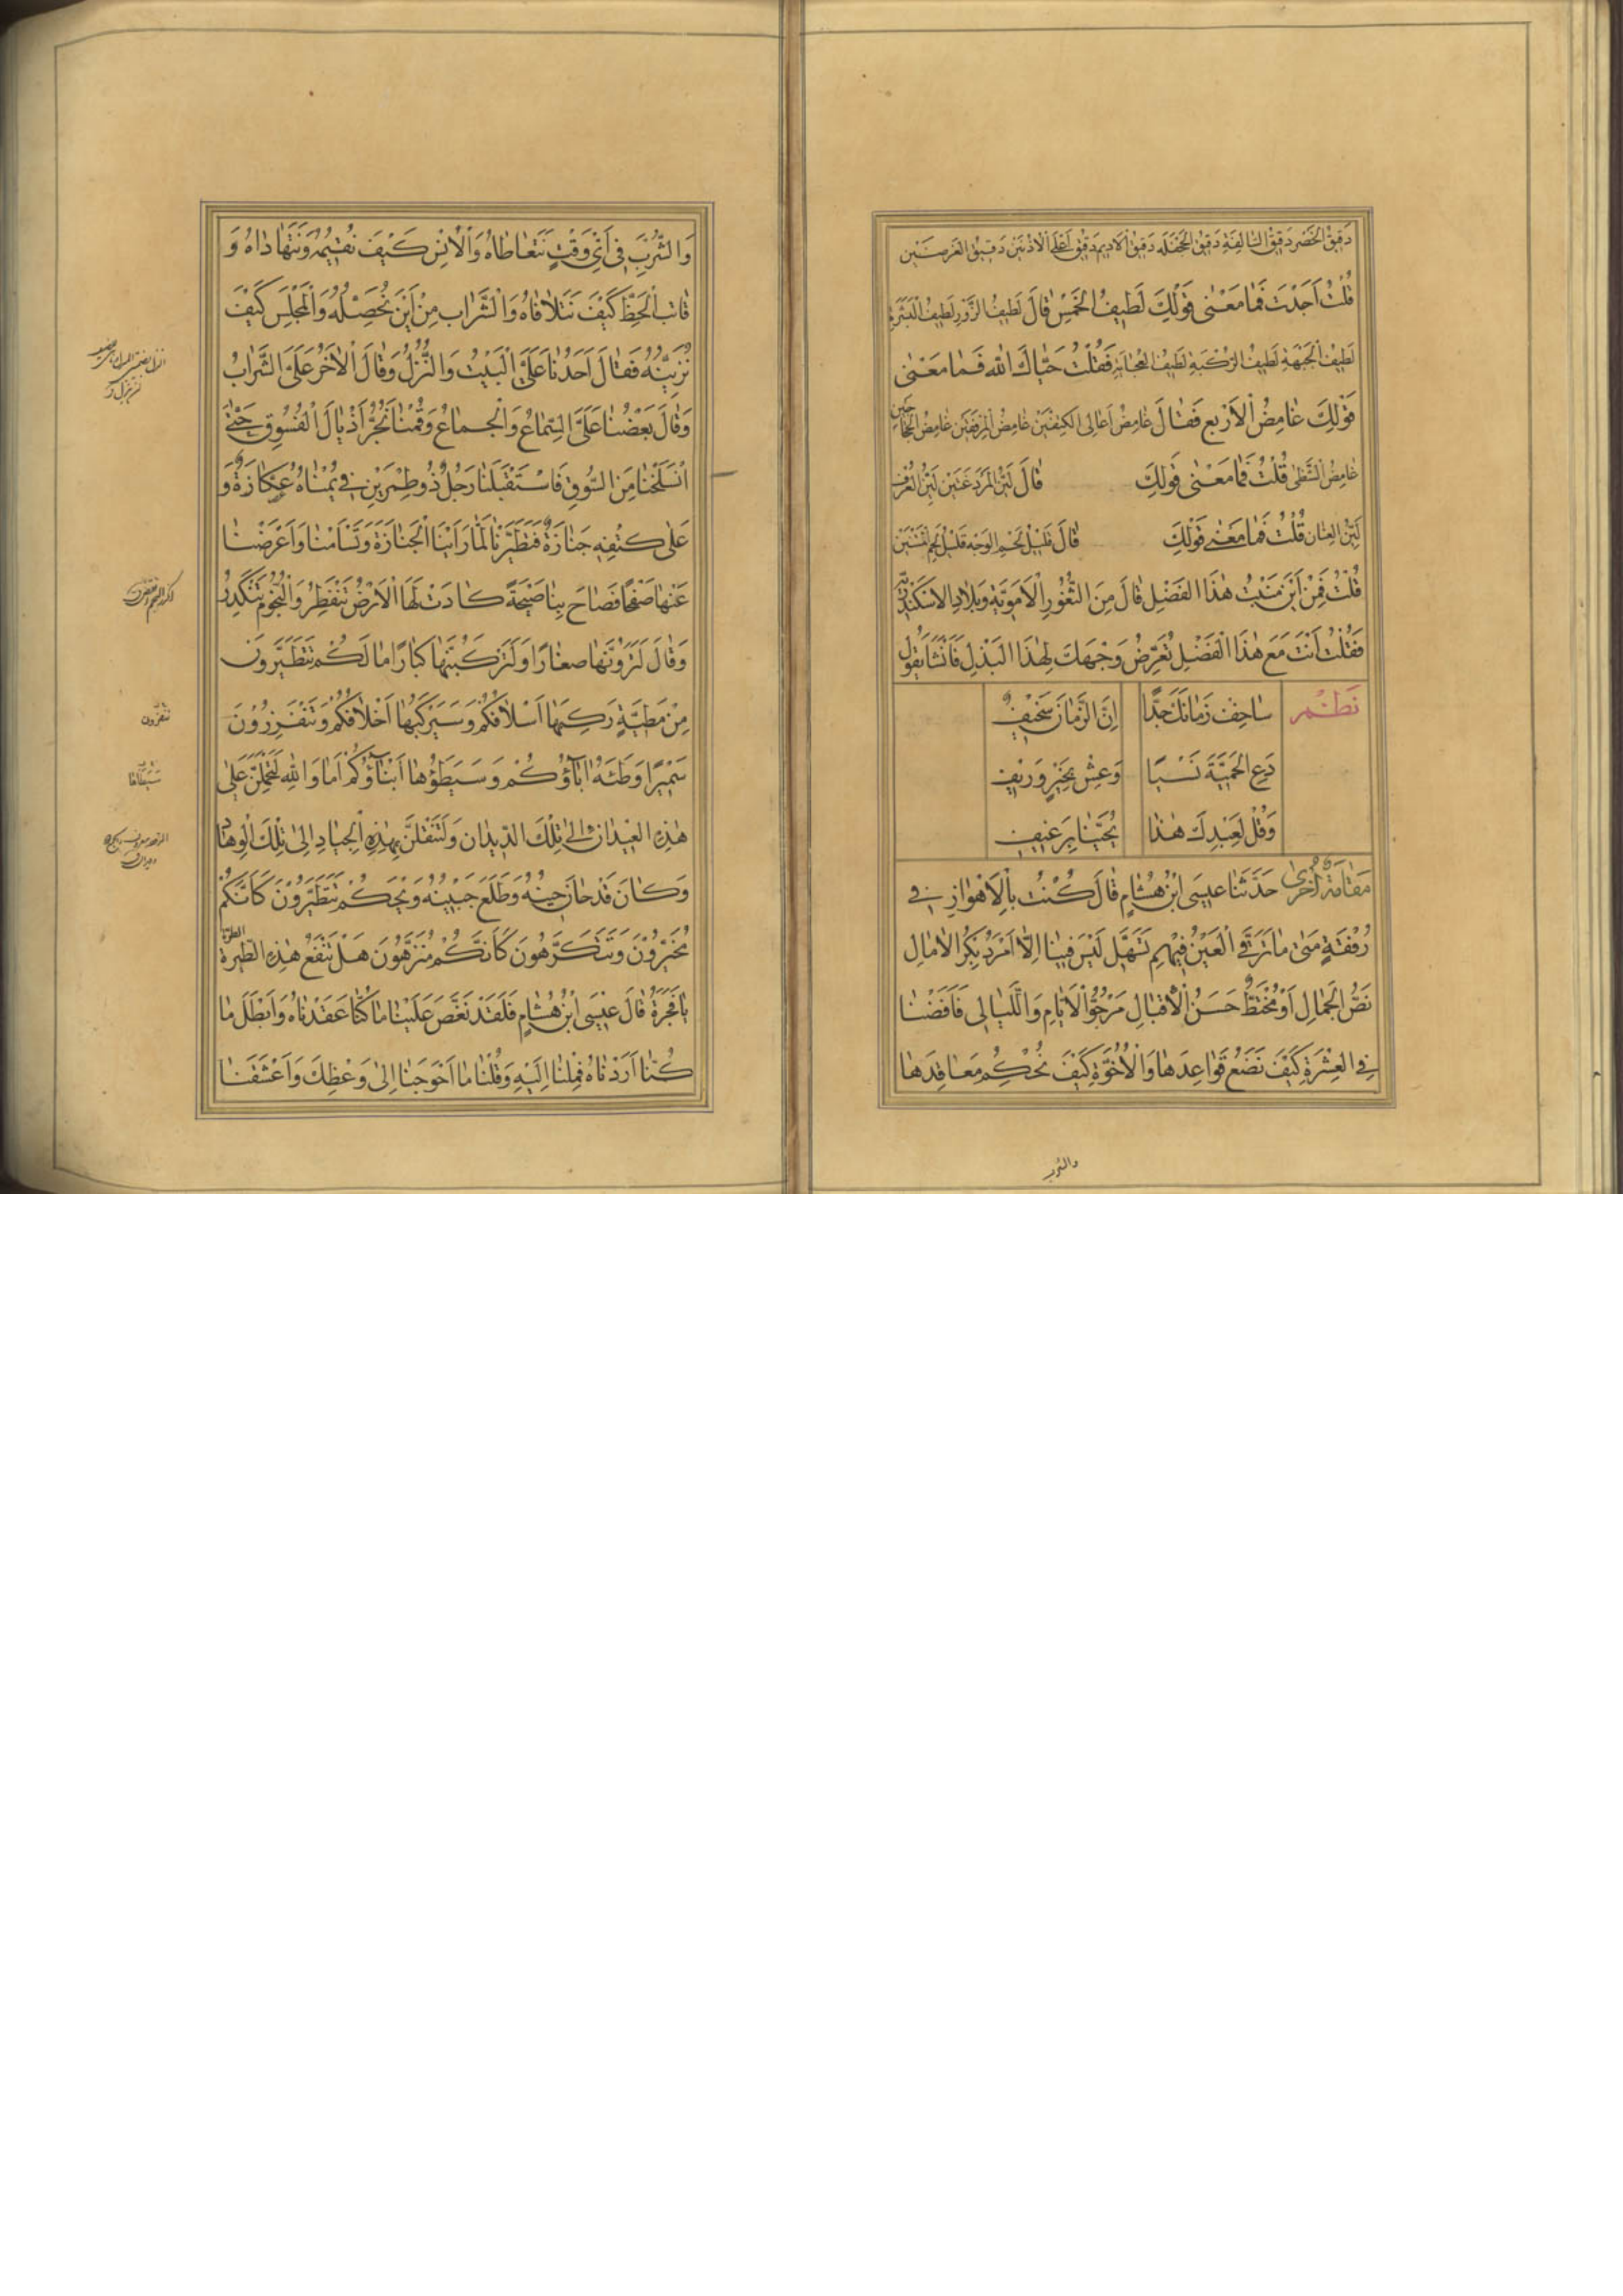 دَقِيقُ الخَصْرِ دَقِيقُ السَّالِفَةِ دَقِيقُ الجَحْفَلَه دَقِيقُ الاَدِيمِ دَقِيقُ اَعْلَى الْاُذُنَيْنِ دَقِيقُ العَرضَيْنِ
قُلْتُ اَجَدْتَ فَمَا مَعْنٰى قَوْلِكَ لَطِيفُ الْخَمْسِ قَالَ لَطِيفُ الزَّوْرِ لَطِيفُ النَّسْرِ
لَطِيفُ الْجَبْهَةِ لَطِيفُ الرُّكْبَةِ لَطِيفُ العُجَايَةِ فَقُلْتُ حَيَّاكَ اللّٰه فَمَا مَعْنٰى
قَوْلِكَ غَامِضُ الْاَرْبَعِ فَقَالَ غَامِضُ اَعَالِى الكَتِفَيْنِ غَامِضُ المِرْفَقَيْنِ غَامِضُ الحِجَاجَيْنِ
غَامِضُ الشَّظٰى قُلْتُ فَمَا مَعْنٰى قَوْلِكَ قَالَ لَيِّنُ المَرْدَغَتَيْنِ لَيِّنُ العُرْفِ
لَيِّنُ العِنَان قُلْتُ فَمَا مَعْنٰى قَوْلِكَ قَالَ قَلِيلُ لَحْمِ الوَجْهِ قَلِيلُ لَحْمِ المَتْنَيْنِ
قُلْتُ فَمِنْ اَيْنَ مَنْبِتُ هٰذَا الفَضْلِ قَالَ مِنَ الثُّغُورِ الْاَمَوِيَّةِ وَبِلَادِ الاِسْكَنْدَرِيَّةِ
فَقُلْتُ اَنْتَ مَعَ هٰذَا الْفَضْلِ تُعَرِّضُ وَجْهَكَ لِهٰذَا الْبَذْلِ فَاَنْشَأَ يَقُولُ
نَظْم سَاخِفْ زَمَانَكَ جِدًّا اِنَّ الزَّمَانَ سَخِيْفٌ
دَعِ الْحَمِيَّةَ نَسْيًا وَعِشْ بِخَيْرٍ وَرِيْفِ
وَقُلْ لِعَبْدِكَ هٰذَا يُجِيْنَا بِرَغِيْفِ
مَقَامَةٌ اُخْرٰى حَدَّثَنَا عِيسَى ابْنُ هِشَامٍ قَالَ كُنْتُ بِالْاَهْوَازِ فِى
رُفْقَةٍ مَتٰى مَا تَرَقَّ الْعَيْنُ فِيهِمِ تَسَهَّلِ لَيْسَ فِيْنَا اِلَّا اَمْرَدُ بِكْرُ الْاٰمَالِ
نَضُّ الْجَمَالِ اَوْ مُخْتَطٌّ حَسَنُ الْاِقْبَالِ مَرْجُوُّ الْاَيَّامِ وَاللَّيَالِى فَاَفَضْنَا
فِى الْعِشْرَةِ كَيْفَ نَضَعُ قَوَاعِدَهَا وَالْاُخُوَّةِ كَيْفَ نُحْكِمُ مَعَاقِدَهَا
والشرب
وَالشُّرْبِ فِى اَىِّ وَقْتٍ نَتَعَاطَاهُ وَالْاُنْسِ كَيْفَ نُقِيْمُهُ وَنَتَهَادَاهُ وَ
فَائِتِ الْحَظِّ كَيْفَ نَتَلَافَاهُ وَالشَّرَابِ مِنْ اَيْنَ نُحَصِّلُهُ وَالْمَجْلِسِ كَيْفَ
نُزَيِّنُهُ فَقَالَ اَحَدُنَا عَلَىَّ الْبَيْتُ وَالنُّزُلُ وَقَالَ الْاٰخَرُ عَلَىَّ الشَّرَابُ
وَقَالَ بَعْضُنَا عَلَىَّ السَّمَاعُ وَالْجِمَاعُ وَقُمْنَا نَجُرُّ اَذْيَالَ الْفُسُوقِ حَتّٰى
انْسَلَخْنَا مِنَ السُّوقِ فَاسْتَقْبَلَنَا رَجُلٌ ذُو طِمْرَيْنِ فِى يُمْنَاهُ عُكَّازَةٌ وَ
عَلٰى كَتِفِهِ جَنَازَةٌ فَتَطَيَّرْنَا لَمَّا رَاَيْنَا الْجَنَازَةَ وَتَشَأَمْنَا وَاَعْرَضْنَا
عَنْهَا صَفْحًا فَصَاحَ بِنَا صَيْحَةً كَادَتْ لَهَا الْاَرْضُ تَنْفَطِرُ وَالنُّجُومُ تَنْكَدِرُ
وَقَالَ لَتَرَوُنَّهَا صِغَارًا وَلَتَرْكَبُنَّهَا كِبَارًا مَا لَكُمْ تَتَطَيَّرُونَ
مِنْ مَطِيَّةٍ رَكِبَهَا اَسْلَافُكُمْ وَسَيَرْكَبُهَا اَخْلَافُكُمْ وَتَتَقَزَّزُوْنَ
سَرِيْرًا وَطِئَهُ اٰبَاؤُكُمْ وَسَيَطَؤُهَا اَبْنَاؤُكُمْ اَمَا وَاللّٰهِ لَتُحْمَلُنَّ عَلٰى
هٰذِهِ الْعِيْدَانِ اِلٰى تِلْكَ الدِّيْدَانِ وَلَتُنْقَلُنَّ بِهٰذِهِ الْجِيَادِ اِلٰى تِلْكَ الْوِهَادِ
وَكَانَ قَدْ حَانَ حِيْنُهُ وَطَلَعَ جَبِيْنُهُ وَيْحَكُمْ تَتَطَيَّرُوْنَ كَاَنَّكُمْ
مُخَيَّرُوْنَ وَتَتَكَرَّهُونَ كَاَنَّكُمْ مُنَزَّهُونَ هَلْ تَنْفَعُ هٰذِهِ الطِّيَرَةُ
يَا فَجَرَةُ قَالَ عِيْسَى ابْنُ هِشَامٍ فَلَقَدْ نَغَّصَ عَلَيْنَا مَا كُنَّا عَقَدْنَاهُ وَاَبْطَلَ مَا
كُنَّا اَرَدْنَاهُ فَمِلْنَا اِلَيْهِ وَقُلْنَا مَا اَحْوَجَنَا اِلٰى وَعْظِكَ وَاَعْشَقَنَا